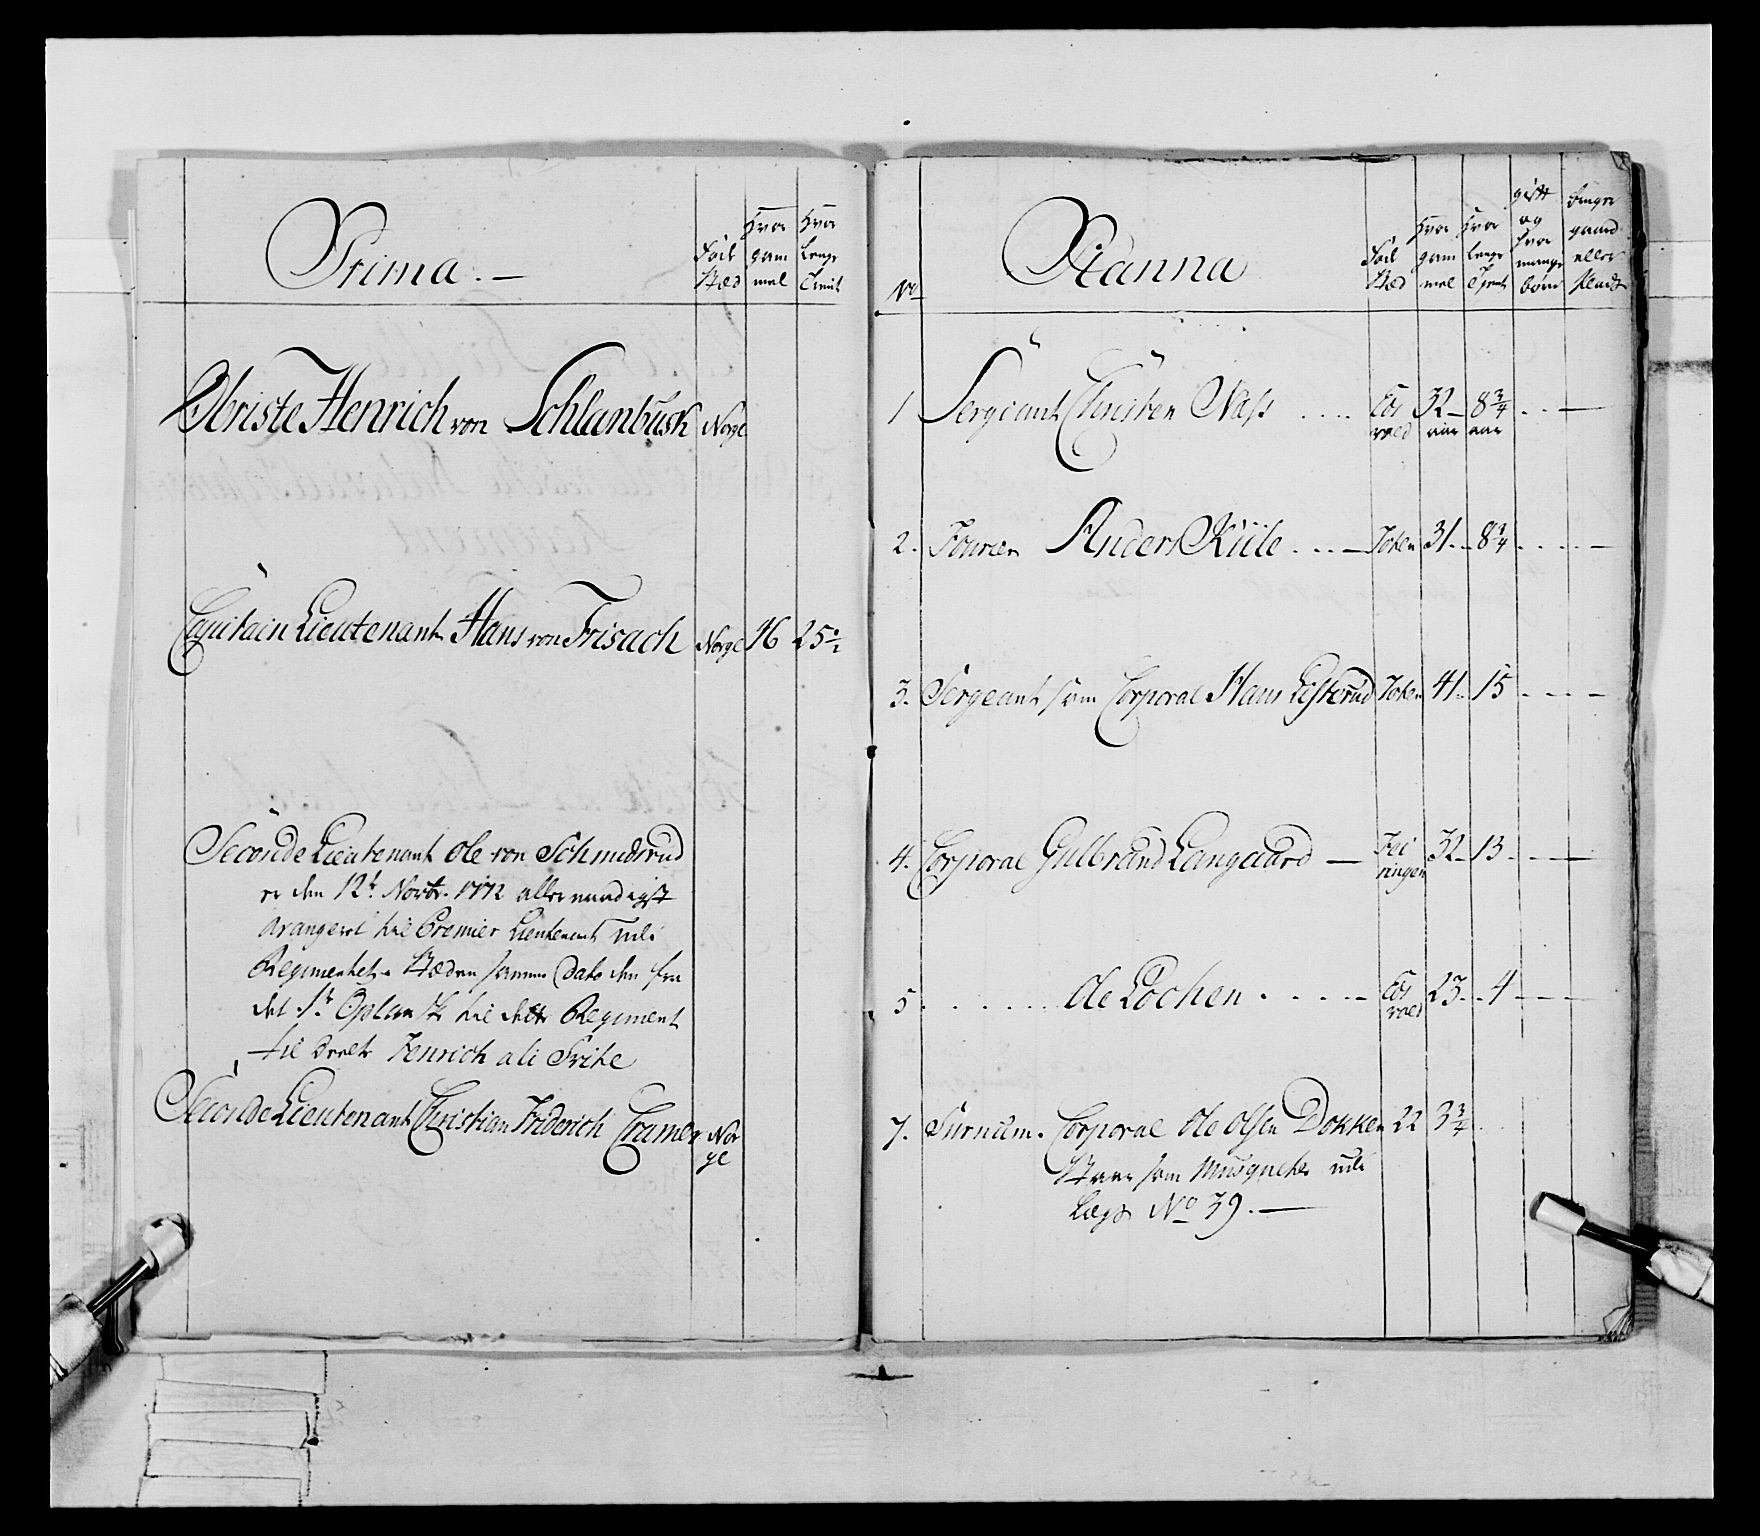 Prima. —
Föd Sted
Hvor gam mel
Hvor lenge Tient
Obriste Henrich von Schlanbusk Norge
Capitain Lieutenant Hans von Frisach Norge 46 25 ½
Seconde Lieutenant Ole von Schmidsrud
er den 12t Novbr. 1772 allernaadigst
arangeret til Premier Lieutenant udi
Regimentet. Steden samme Dato den fra
det 1t Oplandske til dette Regiment
Seconde Lieutenant Christian Friderich Cramer Nor
ge
No
Stanna
Föd Sted
Hvor gam mel
Hvor lenge Tjent
gift og hvor mange børn
bruger gaard eller Plads
1 Sergiant Christen Næss .... Eds 32 – 8 3/4 . . —
vold aar aar
2. Fourier Anders Kiile . . . — Toten 31 . . 8 3/4 . . . . —
3. Sergeant som Corporal Hans Listerud Toten 41 . . 15 . – – –
4. Corporal Gulbrand Langaard — Fei 32 – 13 . – – —
ringen
5 . . . . . . de Lochen . . . . . — Eds 23 . . 4 – – —
vold
7. Surnum. Corporal Ole Olsen Dokken 22 3 3/4
Staar som Musqueter udi
Lægd No 39. —